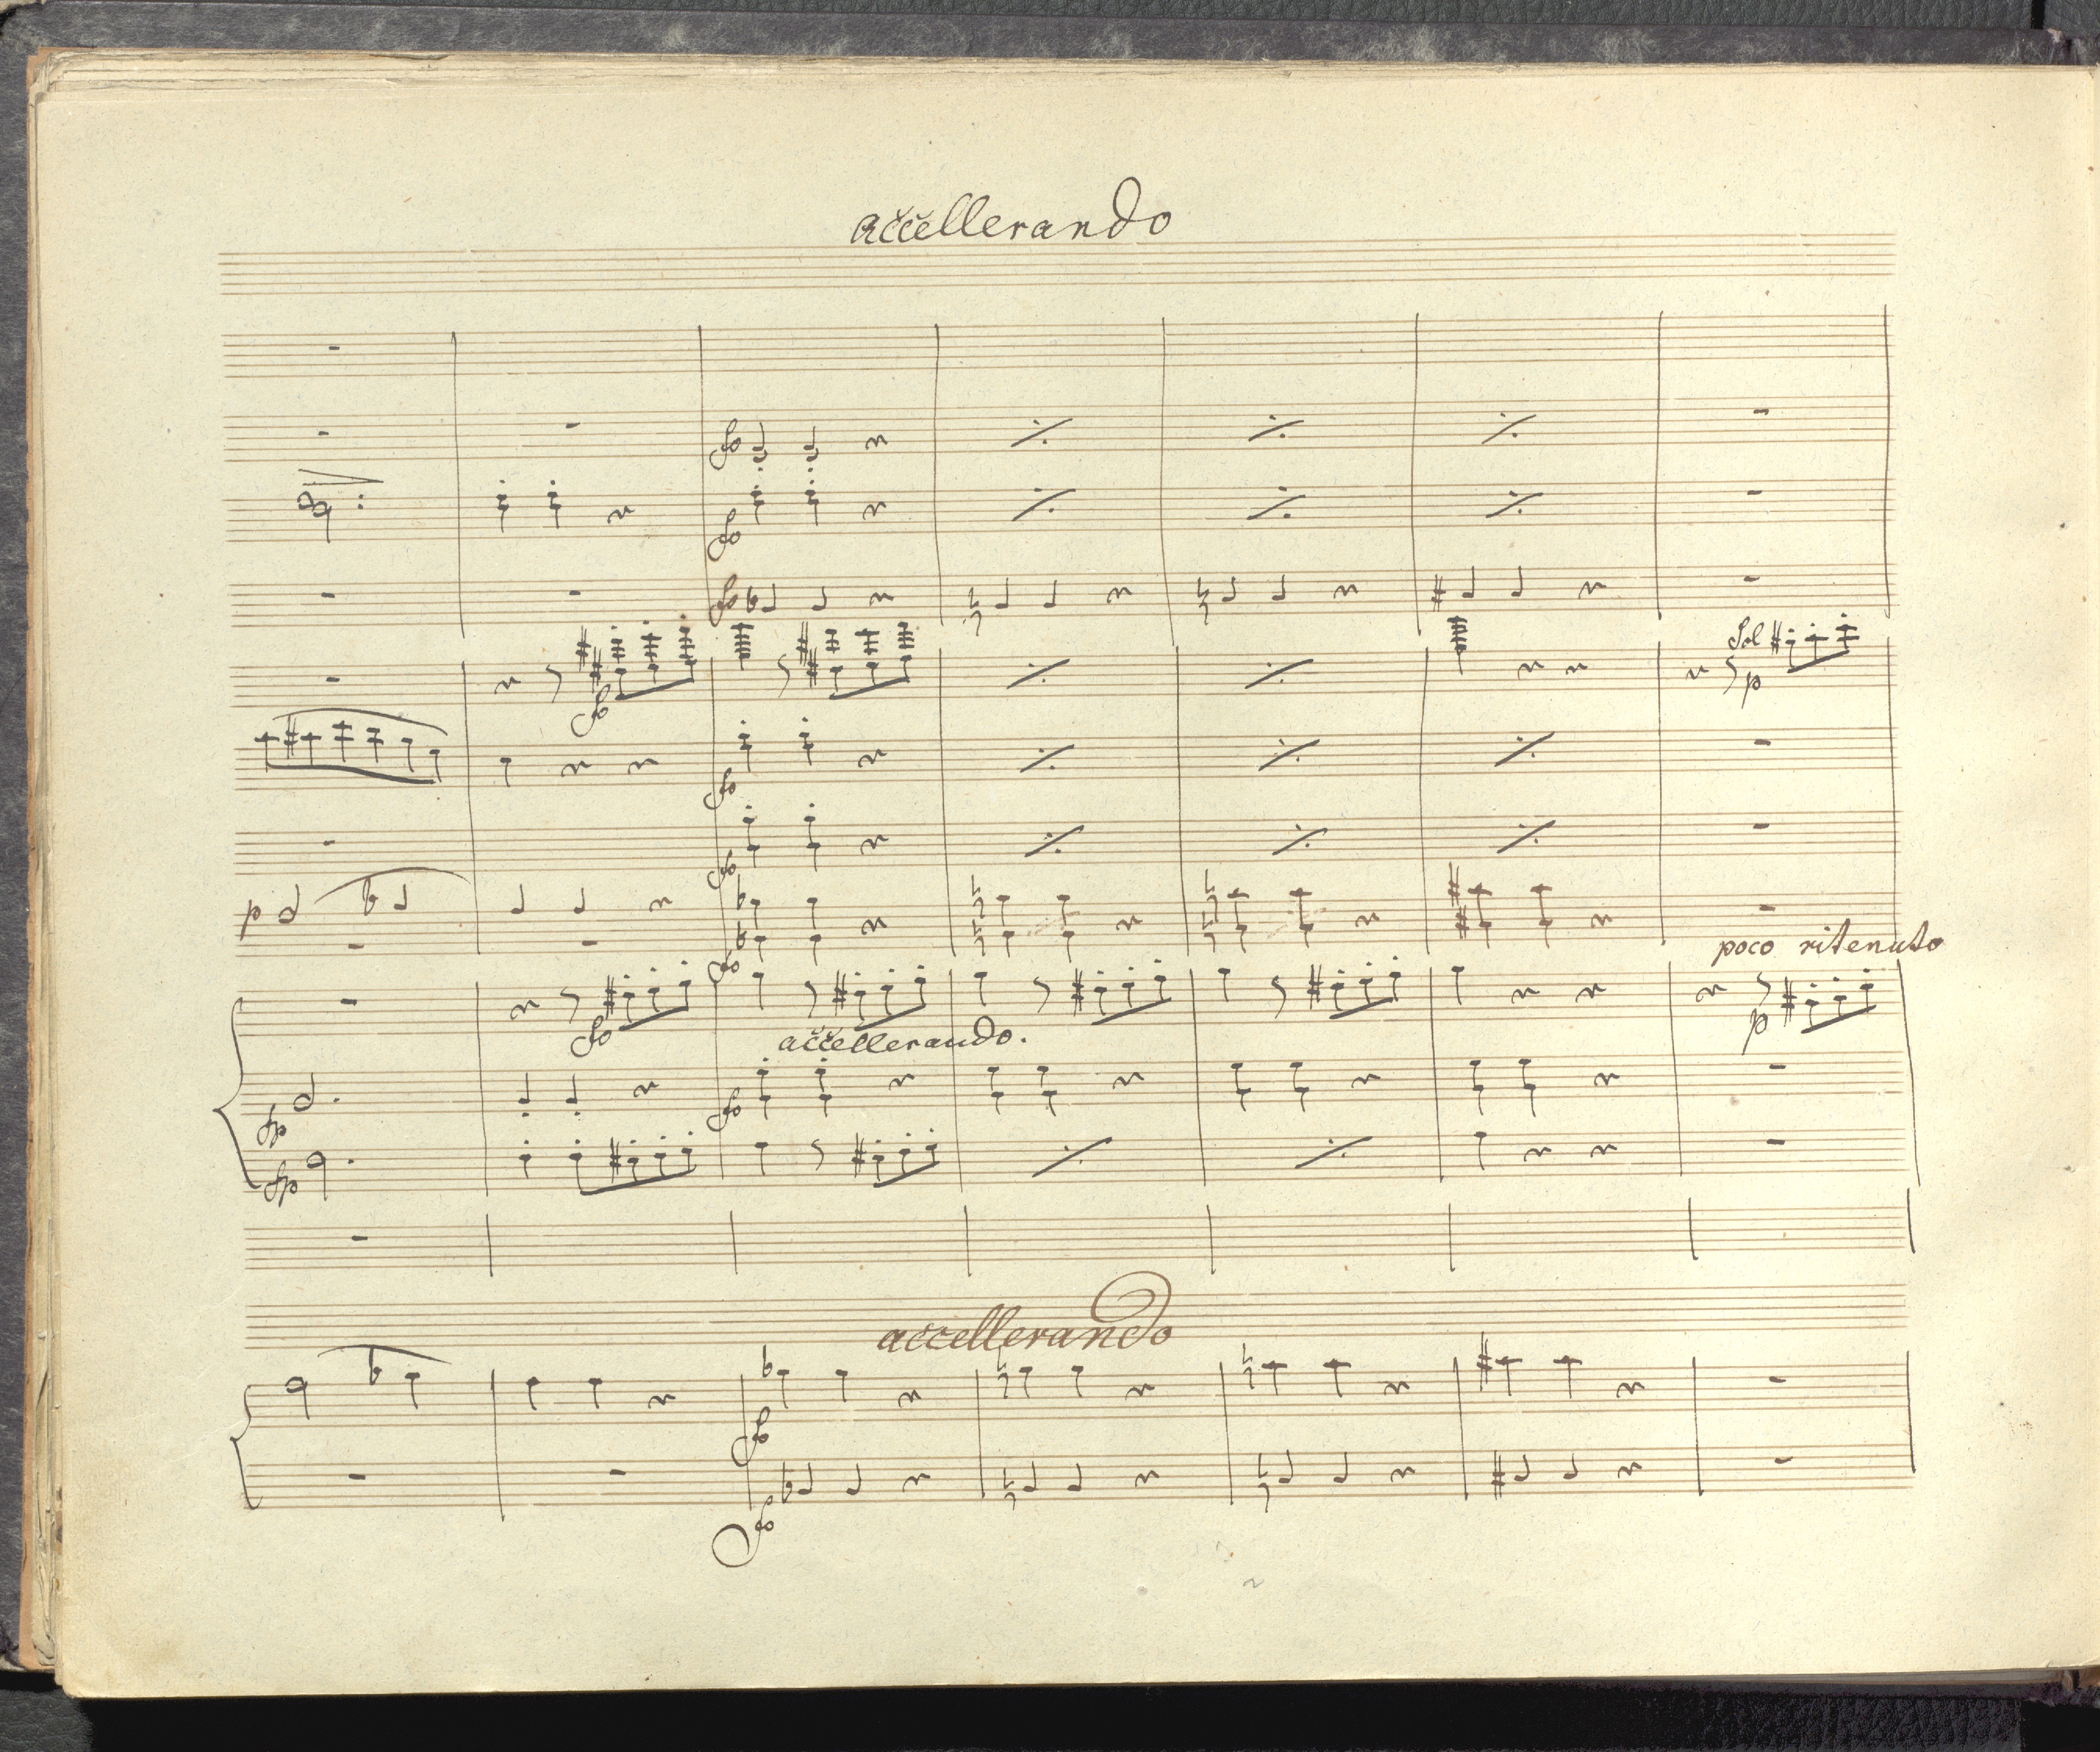 aččellerando
fo
fo
fo
Sol
fo
p
fo
fo
p
fo
poco ritenuto
fo
p
aččellerando.
fo
fp
fp
accellerando
fo
fo